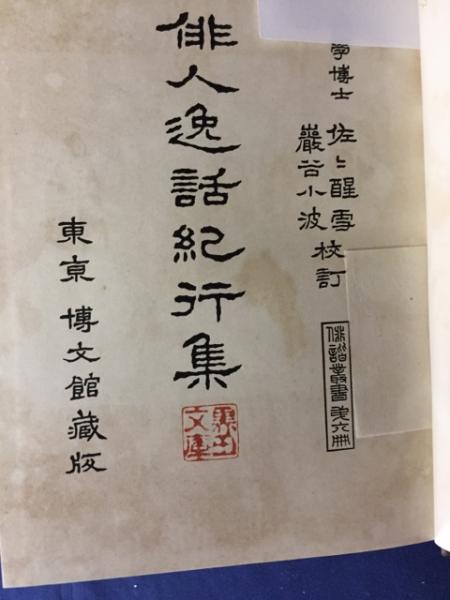 学博士
佐々醒雪
巌谷小波
校訂
俳諧叢書第六冊
俳人逸話紀行集
東京 博文館蔵版